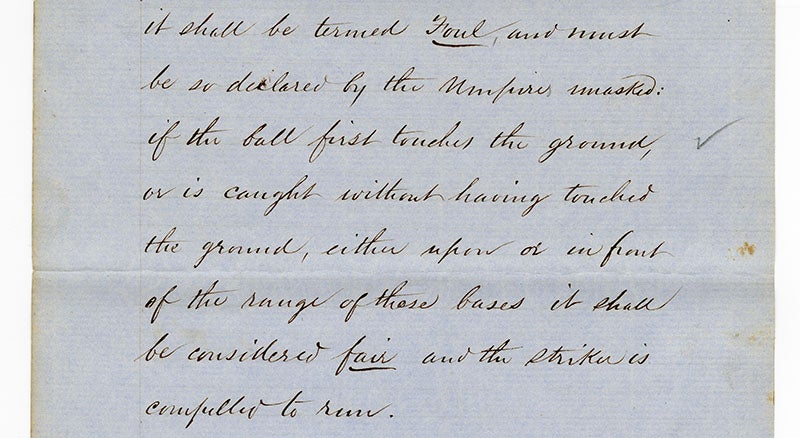 it shall be termed Foul, and must
be so declared by the Umpire unasked:
if the ball first touches the ground,
or is caught without having touched
the ground, either upon or in front
of the range of these bases it shall
be considered fair and the striker is
compelled to run.